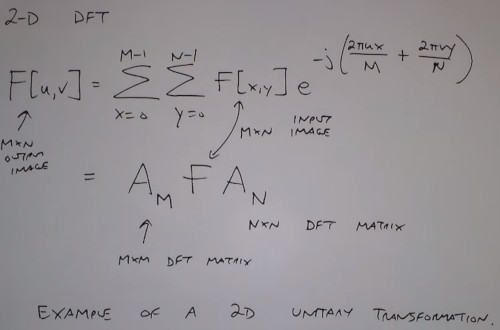 2-D DFT
F[u,v] = M-1 Σ x=0 N-1 Σ y=0 F[x,y] e -j(2πux/M + 2πvy/N)
MxN OUTPUT IMAGE
MxN INPUT IMAGE
= A_M F A_N
NxN DFT MATRIX
MxM DFT MATRIX
EXAMPLE OF A 2D UNITARY TRANSFORMATION.